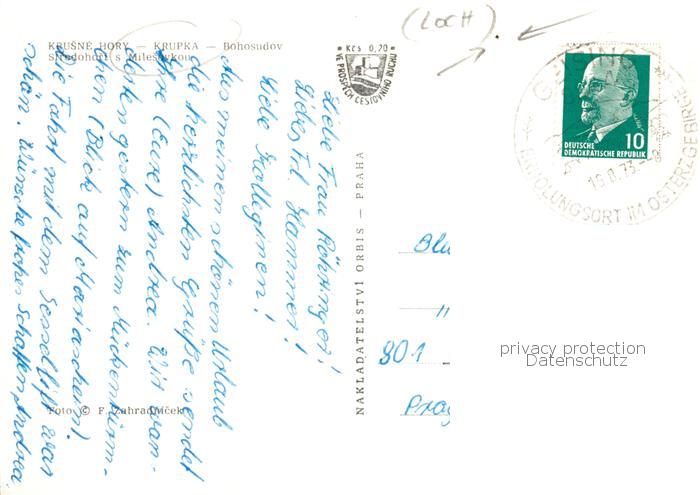 KRUŠNÉ HORY — KRUPKA — Bohosudov
Středohoří s Milešovkou
Kčs 0,70
VE PROSPĚCH CESTOVNÍHO RUCHU
(LOCH).
GEISING
19.8.73-8
ERHOLUNGSORT IM OSTERZGEBIRGE
10
DEUTSCHE
DEMOKRATISCHE REPUBLIK
Liebe Frau Röhringer!
Liebes Frl. Hammer!
Liebe Kolleginnen!
Aus meinem schönen Urlaub
die herzlichsten Grüße sendet
Ihre (Eure) Andrea. Wir wan-
derten gestern zum Mückentürm-
chen (Blick auf Mariaschein).
Die Fahrt mit dem Sessellift war
schön. Wünsche frohes Schaffen Andrea.
NAKLADATELSTVÍ ORBIS — PRAHA
Foto © F. Zahradníček
Blu
"
801
Prag
privacy protection
Datenschutz